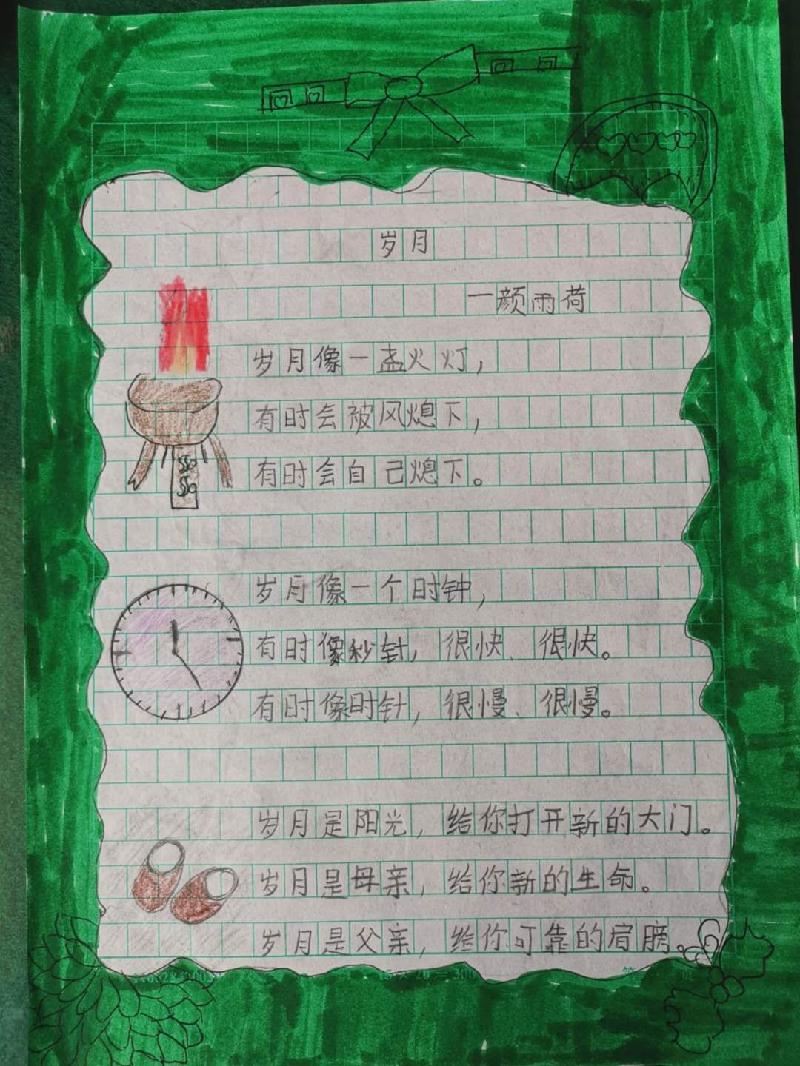 岁月
一颜雨荷
岁月像一盏火灯，
有时会被风熄下，
有时会自己熄下。
岁月像一个时钟，
有时像秒针，很快、很快。
有时像时针，很慢、很慢。
岁月是阳光，给你打开新的大门。
岁月是母亲，给你新的生命。
岁月是父亲，给你可靠的肩膀。